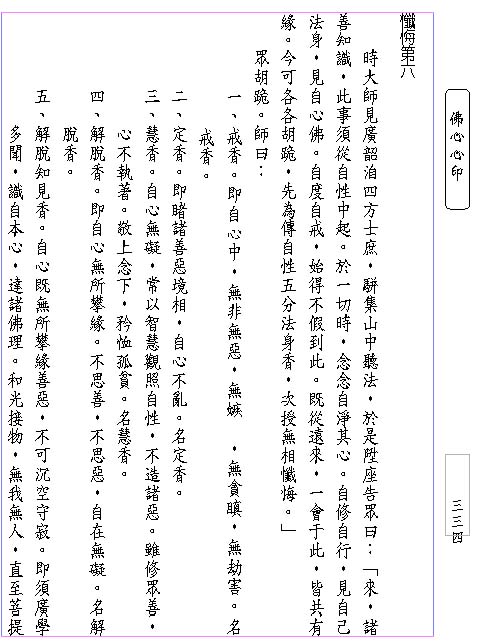 佛心心印
三三四
懺悔第六
時大師見廣韶洎四方士庶，駢集山中聽法，於是陞座告眾曰：「來，諸
善知識，此事須從自性中起。於一切時，念念自淨其心。自修自行，見自己
法身，見自心佛。自度自戒，始得不假到此。既從遠來，一會于此，皆共有
緣。今可各各胡跪，先為傳自性五分法身香，次授無相懺悔。」
眾胡跪。師曰：
一、戒香。即自心中，無非無惡，無嫉　，無貪瞋，無劫害。名
戒香。
二、定香。即睹諸善惡境相，自心不亂。名定香。
三、慧香。自心無礙，常以智慧觀照自性，不造諸惡。雖修眾善，
心不執著。敬上念下，矜恤孤貧。名慧香。
四、解脫香。即自心無所攀緣。不思善，不思惡，自在無礙。名解
脫香。
五、解脫知見香。自心既無所攀緣善惡，不可沉空守寂。即須廣學
多聞，識自本心，達諸佛理。和光接物，無我無人，直至菩提